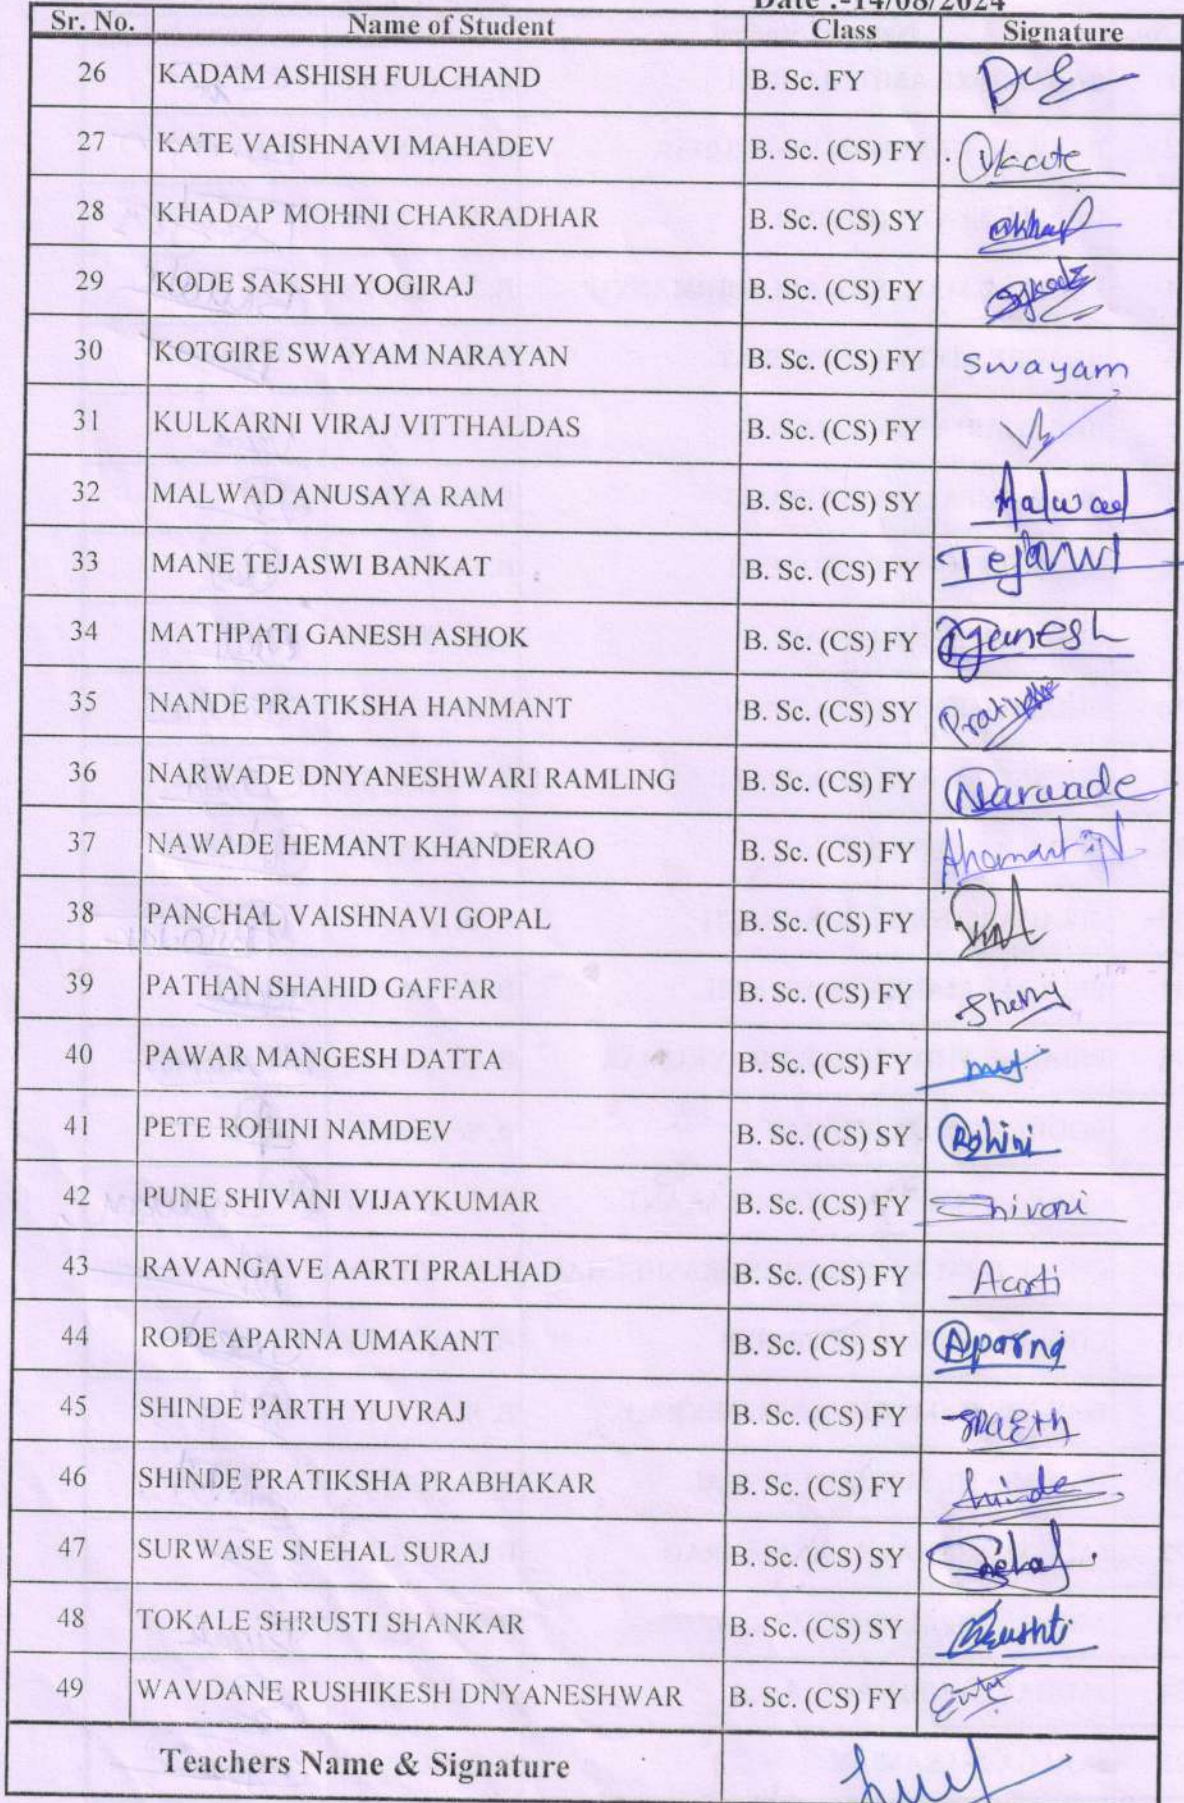 Date :-14/08/2024
Sr. No. Name of Student Class Signature
26 KADAM ASHISH FULCHAND B. Sc. FY
27 KATE VAISHNAVI MAHADEV B. Sc. (CS) FY Vkate
28 KHADAP MOHINI CHAKRADHAR B. Sc. (CS) SY
29 KODE SAKSHI YOGIRAJ B. Sc. (CS) FY Sykode
30 KOTGIRE SWAYAM NARAYAN B. Sc. (CS) FY Swayam
31 KULKARNI VIRAJ VITTHALDAS B. Sc. (CS) FY
32 MALWAD ANUSAYA RAM B. Sc. (CS) SY Malwad
33 MANE TEJASWI BANKAT B. Sc. (CS) FY Tejaswi
34 MATHPATI GANESH ASHOK B. Sc. (CS) FY Ganesh
35 NANDE PRATIKSHA HANMANT B. Sc. (CS) SY
36 NARWADE DNYANESHWARI RAMLING B. Sc. (CS) FY Narwade
37 NAWADE HEMANT KHANDERAO B. Sc. (CS) FY
38 PANCHAL VAISHNAVI GOPAL B. Sc. (CS) FY
39 PATHAN SHAHID GAFFAR B. Sc. (CS) FY
40 PAWAR MANGESH DATTA B. Sc. (CS) FY
41 PETE ROHINI NAMDEV B. Sc. (CS) SY Rohini
42 PUNE SHIVANI VIJAYKUMAR B. Sc. (CS) FY Shivani
43 RAVANGAVE AARTI PRALHAD B. Sc. (CS) FY Aarti
44 RODE APARNA UMAKANT B. Sc. (CS) SY Aparna
45 SHINDE PARTH YUVRAJ B. Sc. (CS) FY
46 SHINDE PRATIKSHA PRABHAKAR B. Sc. (CS) FY Shinde
47 SURWASE SNEHAL SURAJ B. Sc. (CS) SY Snehal
48 TOKALE SHRUSTI SHANKAR B. Sc. (CS) SY
49 WAVDANE RUSHIKESH DNYANESHWAR B. Sc. (CS) FY
Teachers Name & Signature